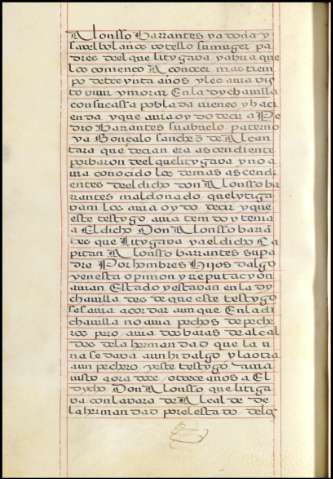 Alonsso barrantes ya doña y
savel bolanos cotello su muger pa
dres del que litygava y abia que
los comenco A conocer mas tiempo
po de treynta años y les avia vis
to vivir y morar En la dycha villa
con su cassa poblada vienes y haci
enda y que avia oydo decir a Pe
dro barrantes su abuelo paterno
ya Gonçalo sanches de Alcan
tara que decian era ascendiente
por baron del que lytygava y no a
via conocido los demas ascendi
entes del dicho don Alonsso bar
rantes maldonado que lytiga
va ni los avia oydo decir y que
este testygo avia tenido y tenia
A El dicho Don Alonsso barra
tes que Litygava ya el dicho Ca
pitan Alonsso barrantes su pa
dre Por hombres Hijos dalgo
y en esta opinion y reputacyon
avian Estado y estavan en la dy
cha villa des de que este testygo
se savia acordar aunque En la di
cha villa no avia pechos de peche
ros pero avia dos baras de alcal
des de la hermandad que la u
na se dava a un hidalgo y la otra
a un pechero y este testygo avia
visto aora doce o trece años a El
dycho Don Alonsso que litiga
va con la vara de Alcalde de
la hirmandad por el estado de los